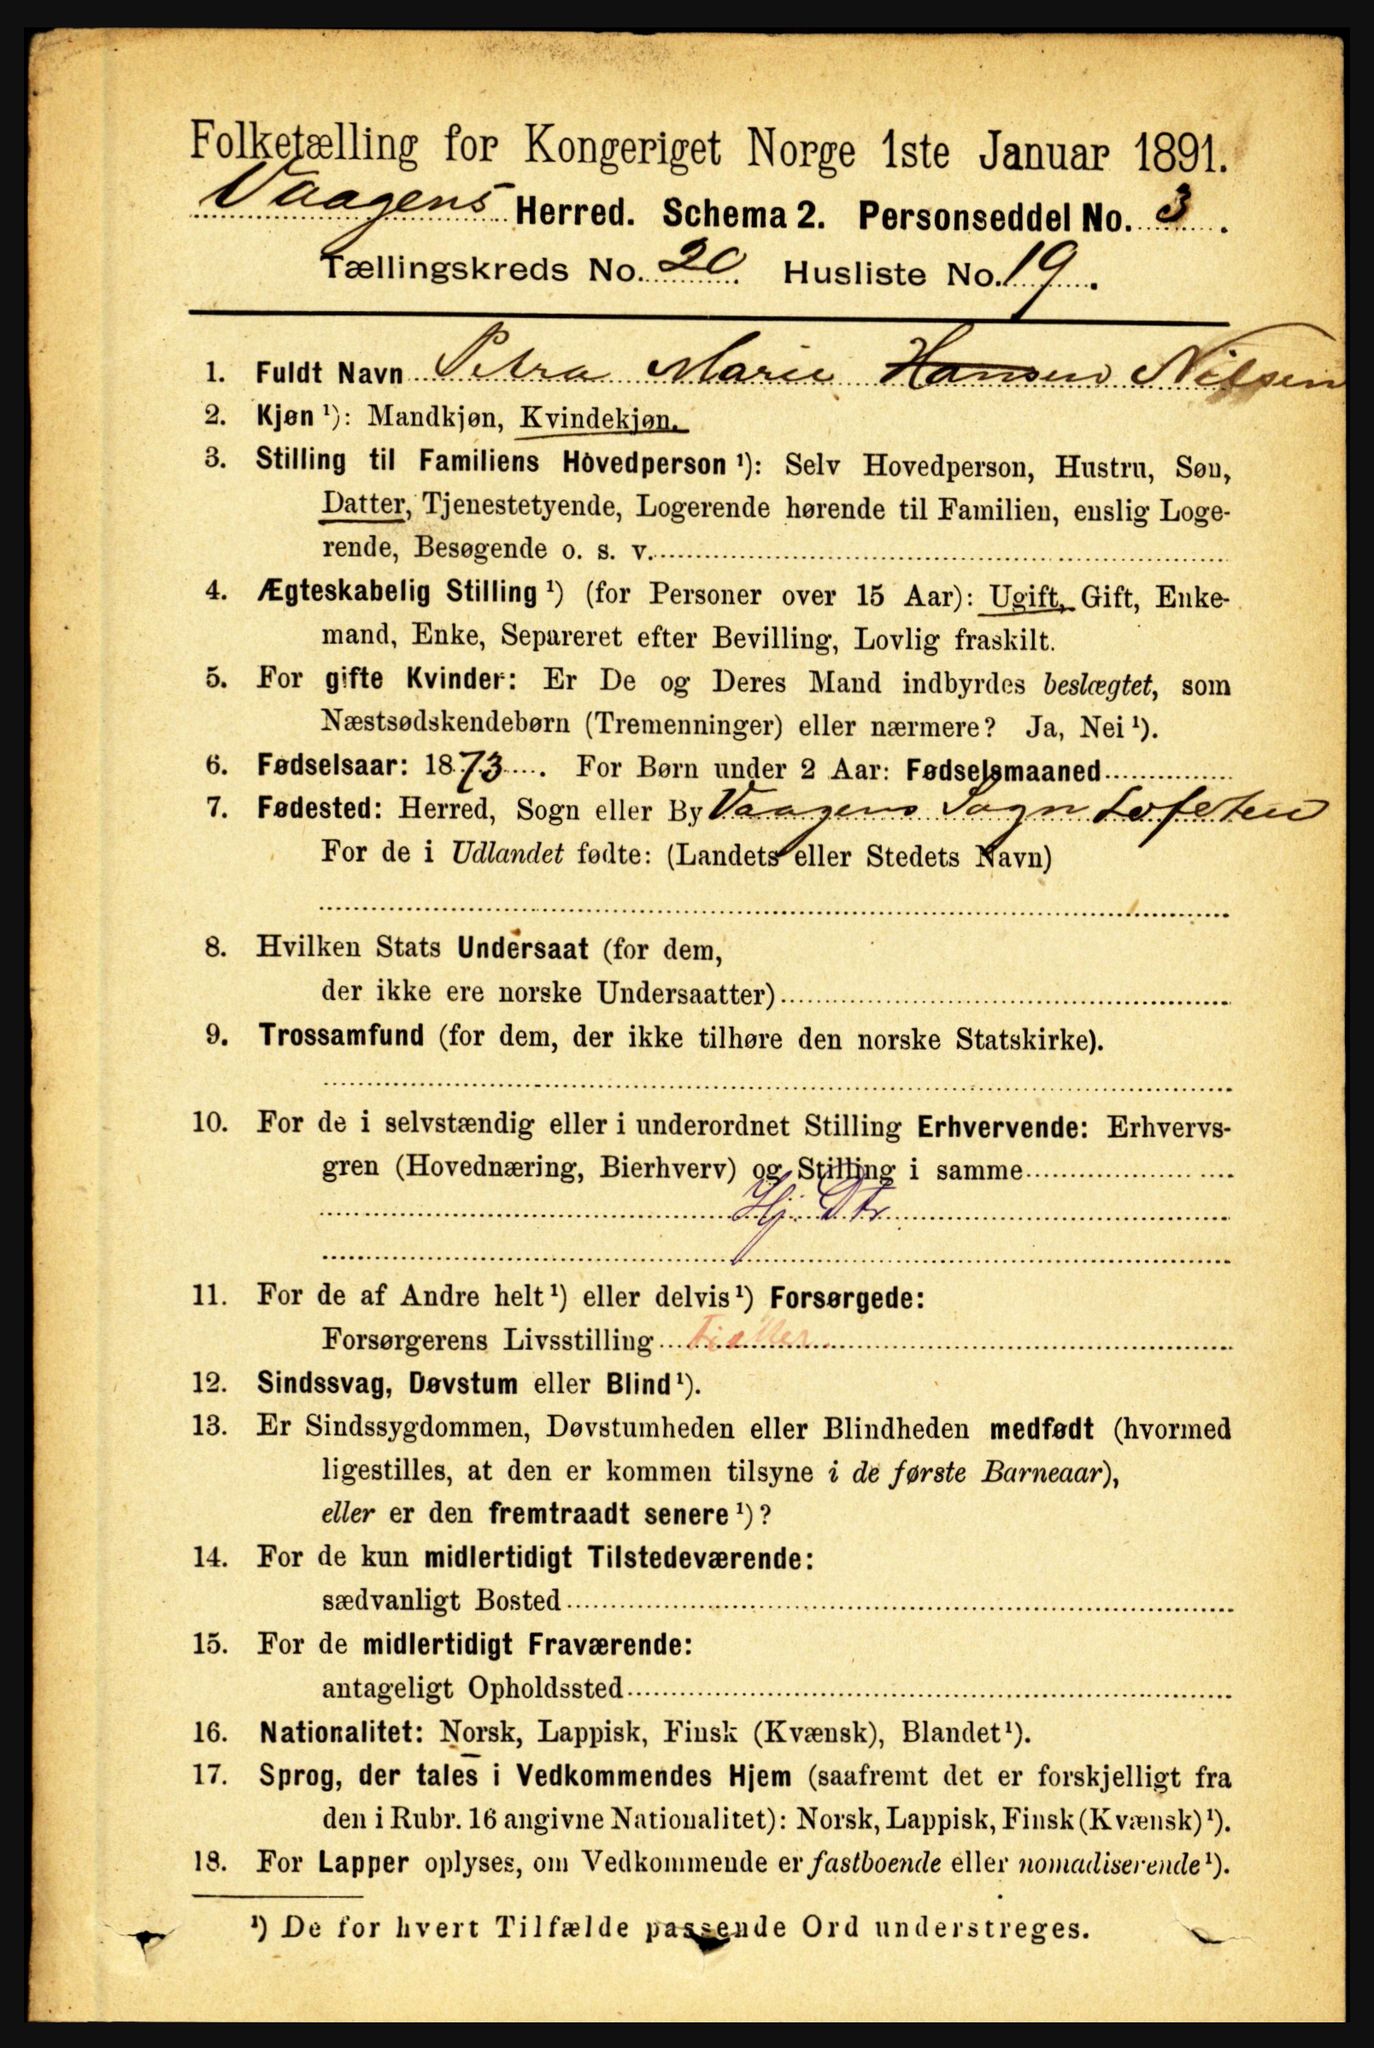 Folketælling for Kongeriget Norge 1ste Januar 1891.
Vaagens Herred. Schema 2. Personseddel No. 3.
Tællingskreds No. 20 Husliste No. 19.
1. Fuldt Navn Petra Marie Hansen Nilsen
2. Kjøn ¹): Mandkjøn, Kvindekjøn.
3. Stilling til Familiens Hovedperson ¹): Selv Hovedperson, Hustru, Søn,
Datter, Tjenestetyende, Logerende hørende til Familien, enslig Loge-
rende, Besøgende o. s. v.
4. Ægteskabelig Stilling ¹) (for Personer over 15 Aar): Ugift, Gift, Enke-
mand, Enke, Separeret efter Bevilling, Lovlig fraskilt.
5. For gifte Kvinder: Er De og Deres Mand indbyrdes beslægtet, som
Næstsødskendebørn (Tremenninger) eller nærmere? Ja, Nei ¹).
6. Fødselsaar: 1873. For Børn under 2 Aar: Fødselsmaaned
7. Fødested: Herred, Sogn eller By Vaagens Sogn Lofoten
For de i Udlandet fødte: (Landets eller Stedets Navn)
8. Hvilken Stats Undersaat (for dem,
der ikke ere norske Undersaatter)
9. Trossamfund (for dem, der ikke tilhøre den norske Statskirke).
10. For de i selvstændig eller i underordnet Stilling Erhvervende: Erhvervs-
gren (Hovednæring, Bierhverv) og Stilling i samme
Hj. Dtr.
11. For de af Andre helt ¹) eller delvis ¹) Forsørgede:
Forsørgerens Livsstilling
12. Sindssvag, Døvstum eller Blind ¹).
13. Er Sindssygdommen, Døvstumheden eller Blindheden medfødt (hvormed
ligestilles, at den er kommen tilsyne i de første Barneaar),
eller er den fremtraadt senere ¹)?
14. For de kun midlertidigt Tilstedeværende:
sædvanligt Bosted
15. For de midlertidigt Fraværende:
antageligt Opholdssted
16. Nationalitet: Norsk, Lappisk, Finsk (Kvænsk), Blandet ¹).
17. Sprog, der tales i Vedkommendes Hjem (saafremt det er forskjelligt fra
den i Rubr. 16 angivne Nationalitet): Norsk, Lappisk, Finsk (Kvænsk) ¹).
18. For Lapper oplyses, om Vedkommende er fastboende eller nomadiserende ¹).
¹) De for hvert Tilfælde passende Ord understreges.